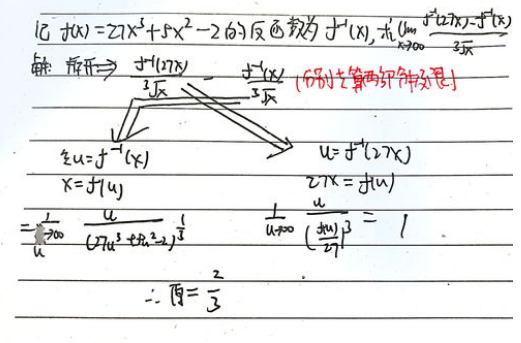 记 f(x)=27x³+5x²-2的反函数为 f⁻¹(x),求 lim x→∞ (f⁻¹(27x)-f⁻¹(x))/³√x
解: 拆开⇒ f⁻¹(27x)/³√x - f⁻¹(x)/³√x (分别去算两部分极限)
令u=f⁻¹(x) u=f⁻¹(27x)
x=f(u) 27x=f(u)
= lim u→∞ u/(27u³+5u²-2)^(1/3) lim u→∞ u/(f(u)/27)^(1/3) = 1
∴ 原=2/3